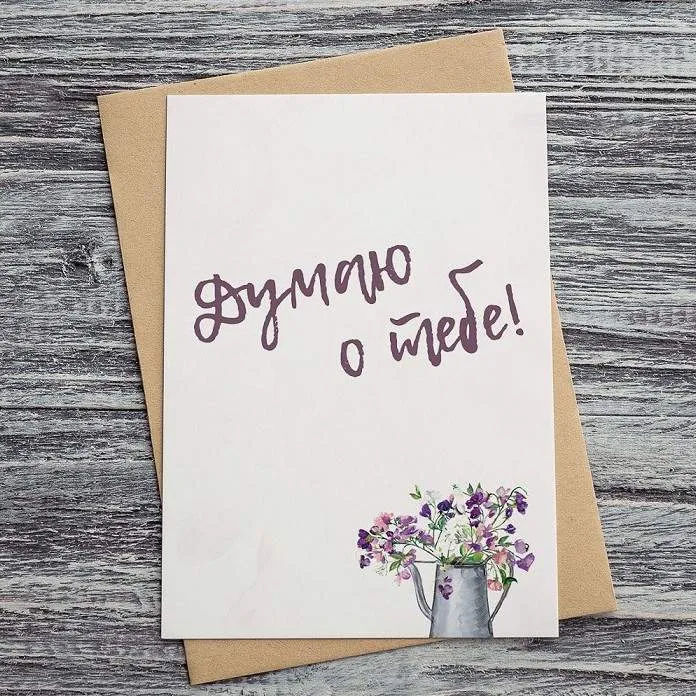 Думаю
о тебе!